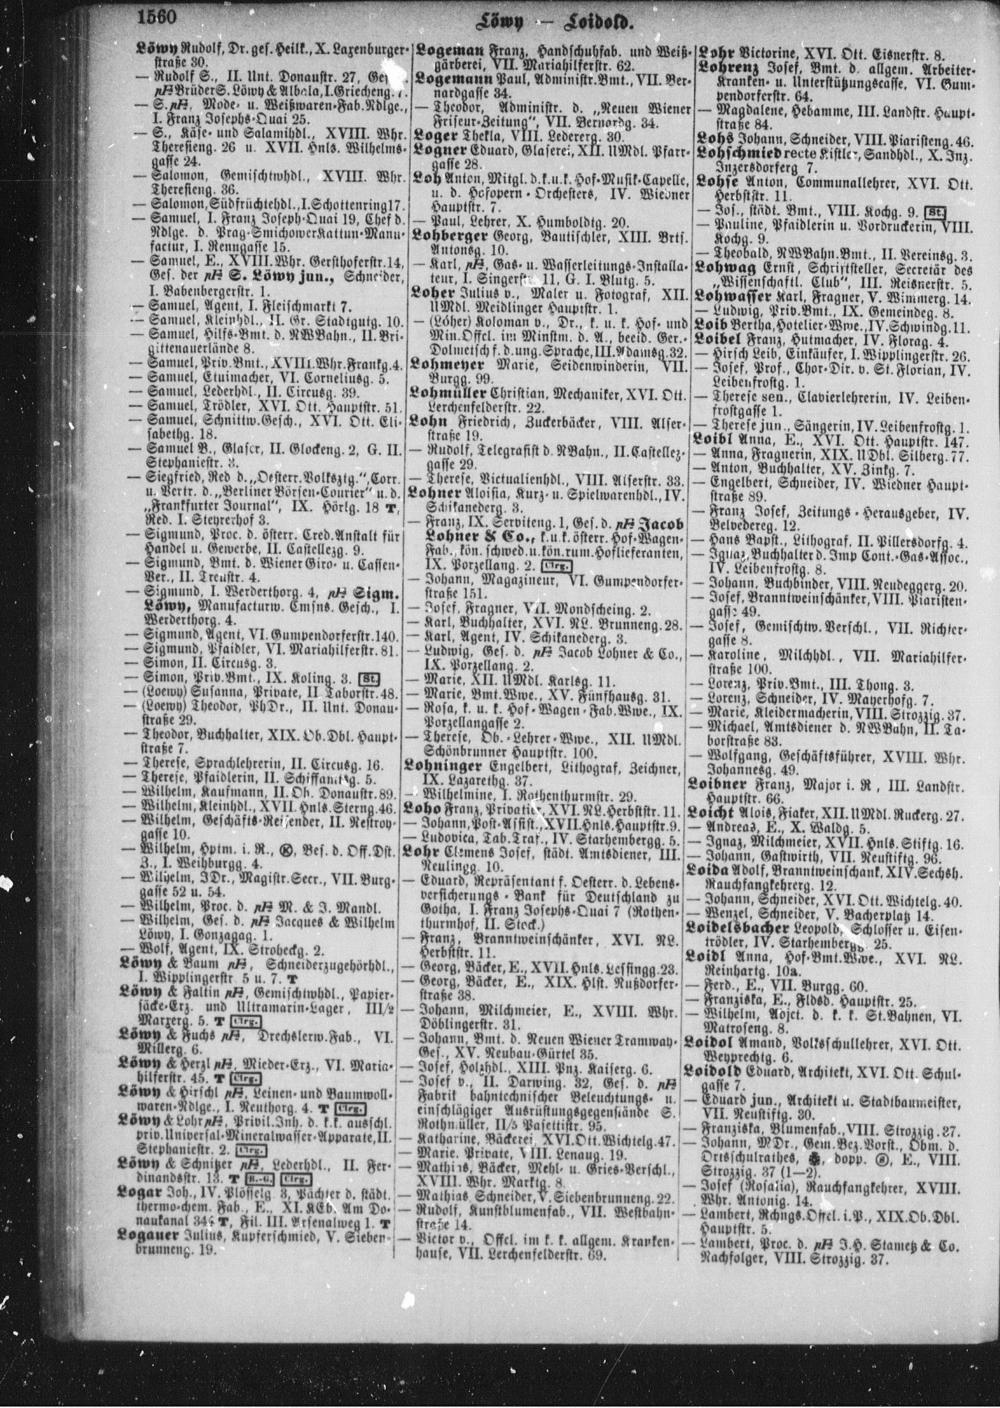 1560
Löwy — Loidold.
Löwy Rudolf, Dr. ges. Heilk., X. Laxenburger-
straße 30.
— Rudolf S., II. Unt. Donaustr. 27, Ges
Brüder S. Löwy & Albala, I. Griecheng. 7.
— S., Mode- u. Weißwaren-Fab. Ndlge.,
I. Franz Josephs-Quai 25.
— S., Käse- und Salamihdl., XVIII. Whr.
Theresieng. 26 u. XVII. Hnls. Wilhelms-
gasse 24.
— Salomon, Gemischtwhdl., XVIII. Whr.
Theresieng. 36.
— Salomon, Südfrüchtehdl., I. Schottenring 17.
— Samuel, I. Franz Joseph-Quai 19, Chef d.
Ndlge. d. Prag-Smichower Kattun-Manu-
factur, I. Renngasse 15.
— Samuel, E., XVIII. Whr. Gersthoferstr. 14,
Ges. der S. Löwy jun., Schneider,
I. Babenbergerstr. 1.
— Samuel, Agent, I. Fleischmarkt 7.
— Samuel, Kleinhdl., II. Gr. Stadtgutg. 10.
— Samuel, Hilfs-Bmt. d. NWBahn., II. Bri-
gittenauerlände 8.
— Samuel, Priv. Bmt., XVIII. Whr. Frankg. 4.
— Samuel, Etuimacher, VI. Corneliusg. 5.
— Samuel, Lederhdl., II. Circusg. 39.
— Samuel, Trödler, XVI. Ott. Hauptstr. 51.
— Samuel, Schnittw. Gesch., XVI. Ott. Eli-
sabethg. 18.
— Samuel B., Glaser, II. Glockeng. 2, G. II.
Stephaniestr. 3.
— Siegfried, Red d. „Oesterr. Volksztg.“, Corr.
u. Vertr. d. „Berliner Börsen-Courier“ u. d.
„Frankfurter Journal“, IX. Hörlg. 18 T,
Red. I. Steyrerhof 3.
— Sigmund, Proc. d. österr. Cred. Anstalt für
Handel u. Gewerbe, II. Castellezg. 9.
— Sigmund, Bmt. d. Wiener Giro- u. Cassen-
Ver., II. Treustr. 4.
— Sigmund, I. Werderthorg. 4, Sigm.
Löwy, Manufacturw. Cmsns. Gesch., I.
Werderthorg. 4.
— Sigmund, Agent, VI. Gumpendorferstr. 140.
— Sigmund, Pfaidler, VI. Mariahilferstr. 81.
— Simon, II. Circusg. 3.
— Simon, Priv. Bmt., IX. Koling. 3. St.
— (Loewy) Susanna, Private, II Taborstr. 48.
— (Loewy) Theodor, PhDr., II. Unt. Donau-
straße 29.
— Theodor, Buchhalter, XIX. Ob. Dbl. Haupt-
straße 7.
— Therese, Sprachlehrerin, II. Circusg. 16.
— Therese, Pfaidlerin, II. Schiffamtsg. 5.
— Wilhelm, Kaufmann, II. Ob. Donaustr. 89.
— Wilhelm, Kleinhdl., XVII. Hnls. Sterng. 46.
— Wilhelm, Geschäfts-Reisender, II. Nestroy-
gasse 10.
— Wilhelm, Hptm. i. R., Bes. d. Off. Dst.
Z., I. Weihburgg. 4.
— Wilhelm, JDr., Magistr. Secr., VII. Burg-
gasse 52 u. 54.
— Wilhelm, Proc. d. M. & J. Mandl.
— Wilhelm, Ges. d. Jacques & Wilhelm
Löwy, I. Gonzagag. 1.
— Wolf, Agent, IX. Stroheckg. 2.
Löwy & Baum, Schneiderzugehörhdl.,
I. Wipplingerstr. 5 u. 7. T
Löwy & Faltin, Gemischtwhdl., Papier-
säcke-Erz. und Ultramarin-Lager, III/2
Marxerg. 5. T Clrg.
Löwy & Fuchs, Drechslerw. Fab., VI.
Millerg. 6.
Löwy & Herzl, Mieder-Erz., VI. Maria-
hilferstr. 45. T Clrg.
Löwy & Hirschl, Leinen- und Baumwoll-
waren-Ndlge., I. Neuthorg. 4. T Clrg.
Löwy & Lohr, Privil. Inh. d. k. k. ausschl.
priv. Universal-Mineralwasser-Apparate, II.
Stephaniestr. 2. Clrg.
Löwy & Schnitzer, Lederhdl., II. Fer-
dinandsstr. 13. T Clrg.
Logar Joh., IV. Plösselg. 3, Pächter d. städt.
thermo-chem. Fab., E., XI. KEb. Am Do-
naukanal 34 T, Fil. III. Arsenalweg 1. T
Logauer Julius, Kupferschmied, V. Sieben-
brunneng. 19.
Logeman Franz, Handschuhfab. und Weiß-
gärberei, VII. Mariahilferstr. 62.
Logemann Paul, Administr. Bmt., VII. Ber-
nardgasse 34.
— Theodor, Administr. d. „Neuen Wiener
Friseur-Zeitung“, VII. Bernardg. 34.
Loger Thekla, VIII. Ledererg. 30.
Logner Eduard, Glaserei, XII. UMdl. Pfarr-
gasse 28.
Loh Anton, Mitgl. d. k. u. k. Hof-Musik-Capelle,
u. d. Hofopern-Orchesters, IV. Wiedner
Hauptstr. 7.
— Paul, Lehrer, X. Humboldtg. 20.
Lohberger Georg, Bautischler, XIII. Brts.
Antonsg. 10.
— Karl, Gas- u. Wasserleitungs-Installa-
teur, I. Singerstr. 11, G. I. Blutg. 5.
Loher Julius v., Maler u. Fotograf, XII.
UMdl. Meidlinger Hauptstr. 1.
— (Löher) Koloman v., Dr., k. u. k. Hof- und
Min. Offcl. im Minstm. d. A., beeid. Ger.-
Dolmetsch f. d. ung. Sprache, III. Adamsg. 32.
Lohmeyer Marie, Seidenwinderin, VII.
Burgg. 99.
Lohmüller Christian, Mechaniker, XVI. Ott.
Lerchenfelderstr. 22.
Lohn Friedrich, Zuckerbäcker, VIII. Alser-
straße 19.
— Rudolf, Telegrafist d. NBahn., II. Castellez-
gasse 29.
— Therese, Victualienhdl., VIII. Alserstr. 33.
Lohner Aloisia, Kurz- u. Spielwarenhdl., IV.
Schikanederg. 3.
— Franz, IX. Serviteng. 1, Ges. d. Jacob
Lohner & Co., k. u. k. österr. Hof-Wagen-
Fab., kön. schwed. u. kön. rum. Hoflieferanten,
IX. Porzellang. 2. Clrg.
— Johann, Magazineur, VI. Gumpendorfer-
straße 151.
— Josef, Fragner, VII. Mondscheing. 2.
— Karl, Buchhalter, XVI. NL. Brunneng. 28.
— Karl, Agent, IV. Schikanederg. 3.
— Ludwig, Ges. d. Jacob Lohner & Co.,
IX. Porzellang. 2.
— Marie, XII. UMdl. Karlsg. 11.
— Marie, Bmt. Wwe., XV. Fünfhausg. 31.
— Rosa, k. u. k. Hof-Wagen-Fab. Wwe., IX.
Porzellangasse 2.
— Therese, Ob.-Lehrer-Wwe., XII. UMdl.
Schönbrunner Hauptstr. 100.
Lohninger Engelbert, Lithograf, Zeichner,
IX. Lazarethg. 37.
— Wilhelmine, I. Rothenthurmstr. 29.
Loho Franz, Privatier, XVI. NL. Herbststr. 11.
— Johann, Post-Assist., XVII. Hnls. Hauptstr. 9.
— Ludovica, Tab. Traf., IV. Starhembergg. 5.
Lohr Clemens Josef, städt. Amtsdiener, III.
Neulingg. 10.
— Eduard, Repräsentant f. Oesterr. d. Lebens-
versicherungs-Bank für Deutschland zu
Gotha, I. Franz Josephs-Quai 7 (Rothen-
thurmhof, II. Stock.)
— Franz, Branntweinschänker, XVI. NL.
Herbststr. 11.
— Georg, Bäcker, E., XVII. Hnls. Lessingg. 23.
— Georg, Bäcker, E., XIX. Hlst. Nußdorfer-
straße 38.
— Johann, Milchmeier, E., XVIII. Whr.
Döblingerstr. 31.
— Johann, Bmt. d. Neuen Wiener Tramway-
Ges., XV. Neubau-Gürtel 35.
— Josef, Holzhdl., XIII. Pnz. Kaiserg. 6.
— Josef v., II. Darwing. 32, Ges. d.
Fabrik bahntechnischer Beleuchtungs- u.
einschlägiger Ausrüstungsgegenstände S.
Rothmüller, II/5 Pasettistr. 95.
— Katharine, Bäckerei, XVI. Ott. Wichtelg. 47.
— Marie, Private, VIII. Lenaug. 19.
— Mathias, Bäcker, Mehl- u. Gries-Verschl.,
XVIII. Whr. Marktg. 8.
— Mathias, Schneider, V. Siebenbrunneng. 22.
— Rudolf, Kunstblumenfab., VII. Westbahn-
straße 14.
— Victor v., Offcl. im k. k. allgem. Kranken-
hause, VII. Lerchenfelderstr. 69.
Lohr Victorine, XVI. Ott. Eisnerstr. 8.
Lohrenz Josef, Bmt. d. allgem. Arbeiter-
Kranken- u. Unterstützungscasse, VI. Gum-
pendorferstr. 64.
— Magdalene, Hebamme, III. Landstr. Haupt-
straße 84.
Lohs Johann, Schneider, VIII. Piaristeng. 46.
Lohschmied recte Kistler, Sandhdl., X. Inz.
Inzersdorferg 7.
Lohse Anton, Communallehrer, XVI. Ott.
Herbststr. 11.
— Jos., städt. Bmt., VIII. Kochg. 9. St.
— Pauline, Pfaidlerin u. Vordruckerin, VIII.
Kochg. 9.
— Theobald, NWBahn. Bmt., II. Vereinsg. 3.
Lohwag Ernst, Schriftsteller, Secretär des
„Wissenschaftl. Club“, III. Reisnerstr. 5.
Lohwasser Karl, Fragner, V. Wimmerg. 14.
— Ludwig, Priv. Bmt., IX. Gemeindeg. 8.
Loib Bertha, Hotelier-Wwe., IV. Schwindg. 11.
Loibel Franz, Hutmacher, IV. Florag. 4.
— Hirsch Leib, Einkäufer, I. Wipplingerstr. 26.
— Josef, Prof., Chor-Dir. v. St. Florian, IV.
Leibenfrostg. 1.
— Therese sen., Clavierlehrerin, IV. Leiben-
frostgasse 1.
— Therese jun., Sängerin, IV. Leibenfrostg. 1.
Loibl Anna, E., XVI. Ott. Hauptstr. 147.
— Anna, Fragnerin, XIX. UDbl. Silberg. 77.
— Anton, Buchhalter, XV. Zinkg. 7.
— Engelbert, Schneider, IV. Wiedner Haupt-
straße 89.
— Franz Josef, Zeitungs-Herausgeber, IV.
Belvedereg. 12.
— Hans Bapst., Lithograf, II. Pillersdorfg. 4.
— Ignaz, Buchhalter d. Imp Cont.-Gas-Assoc.,
IV. Leibenfrostg. 8.
— Johann, Buchbinder, VIII. Neudeggerg. 20.
— Josef, Branntweinschänker, VIII. Piaristen-
gasse 49.
— Josef, Gemischtw. Verschl., VII. Richter-
gasse 8.
— Karoline, Milchhdl., VII. Mariahilfer-
straße 100.
— Lorenz, Priv. Bmt., III. Thong. 3.
— Lorenz, Schneider, IV. Mayerhofg. 7.
— Marie, Kleidermacherin, VIII. Strozzig. 37.
— Michael, Amtsdiener d. NWBahn, II. Ta-
borstraße 83.
— Wolfgang, Geschäftsführer, XVIII. Whr.
Johannesg. 49.
Loibner Franz, Major i. R, III. Landstr.
Hauptstr. 66.
Loicht Alois, Fiaker, XII. UMdl. Ruckerg. 27.
— Andreas, E., X. Waldg. 5.
— Ignaz, Milchmeier, XVII. Hnls. Stiftg. 16.
— Johann, Gastwirth, VII. Neustiftg. 96.
Loida Adolf, Branntweinschank, XIV. Sechsh.
Rauchfangkehrerg. 12.
— Johann, Schneider, XVI. Ott. Wichtelg. 40.
— Wenzel, Schneider, V. Bacherplatz 14.
Loidelsbacher Leopold, Schlosser u. Eisen-
trödler, IV. Starhembergg. 25.
Loidl Anna, Hof-Bmt. Wwe., XVI. NL.
Reinhartg. 10a.
— Ferd., E., VII. Burgg. 60.
— Franziska, E., Fldsd. Hauptstr. 25.
— Wilhelm, Adjct. d. k. k. St. Bahnen, VI.
Matroseng. 8.
Loidol Amand, Volksschullehrer, XVI. Ott.
Weyprechtg. 6.
Loidold Eduard, Architekt, XVI. Ott. Schul-
gasse 7.
— Eduard jun., Architekt u. Stadtbaumeister,
VII. Neustiftg. 30.
— Franziska, Blumenfab., VIII. Strozzig. 37.
— Johann, MDr., Gem. Bez. Vorst., Obm. d.
Ortsschulrathes, dopp. E., VIII.
Strozzig. 37 (1—2).
— Josef (Rosalia), Rauchfangkehrer, XVIII.
Whr. Antonig. 14.
— Lambert, Rchngs. Offcl. i. P., XIX. Ob. Dbl.
Hauptstr. 5.
— Lambert, Proc. d. J. H. Stametz & Co.
Nachfolger, VIII. Strozzig. 37.